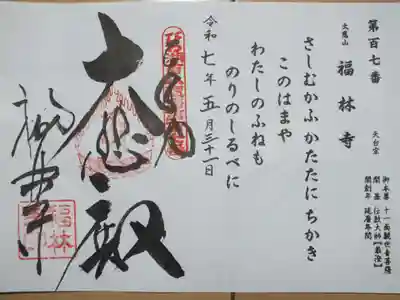 第百七番
大慈山 福林寺 天台宗
御本尊 十一面観世音菩薩
開基 伝教大師【最澄】
開創年 延暦年間
さしむかふかたたにちかき
このはまや
わたしのふねも
のりのしるべに
令和七年五月三十一日
奉拝
大悲殿
福林寺
福林